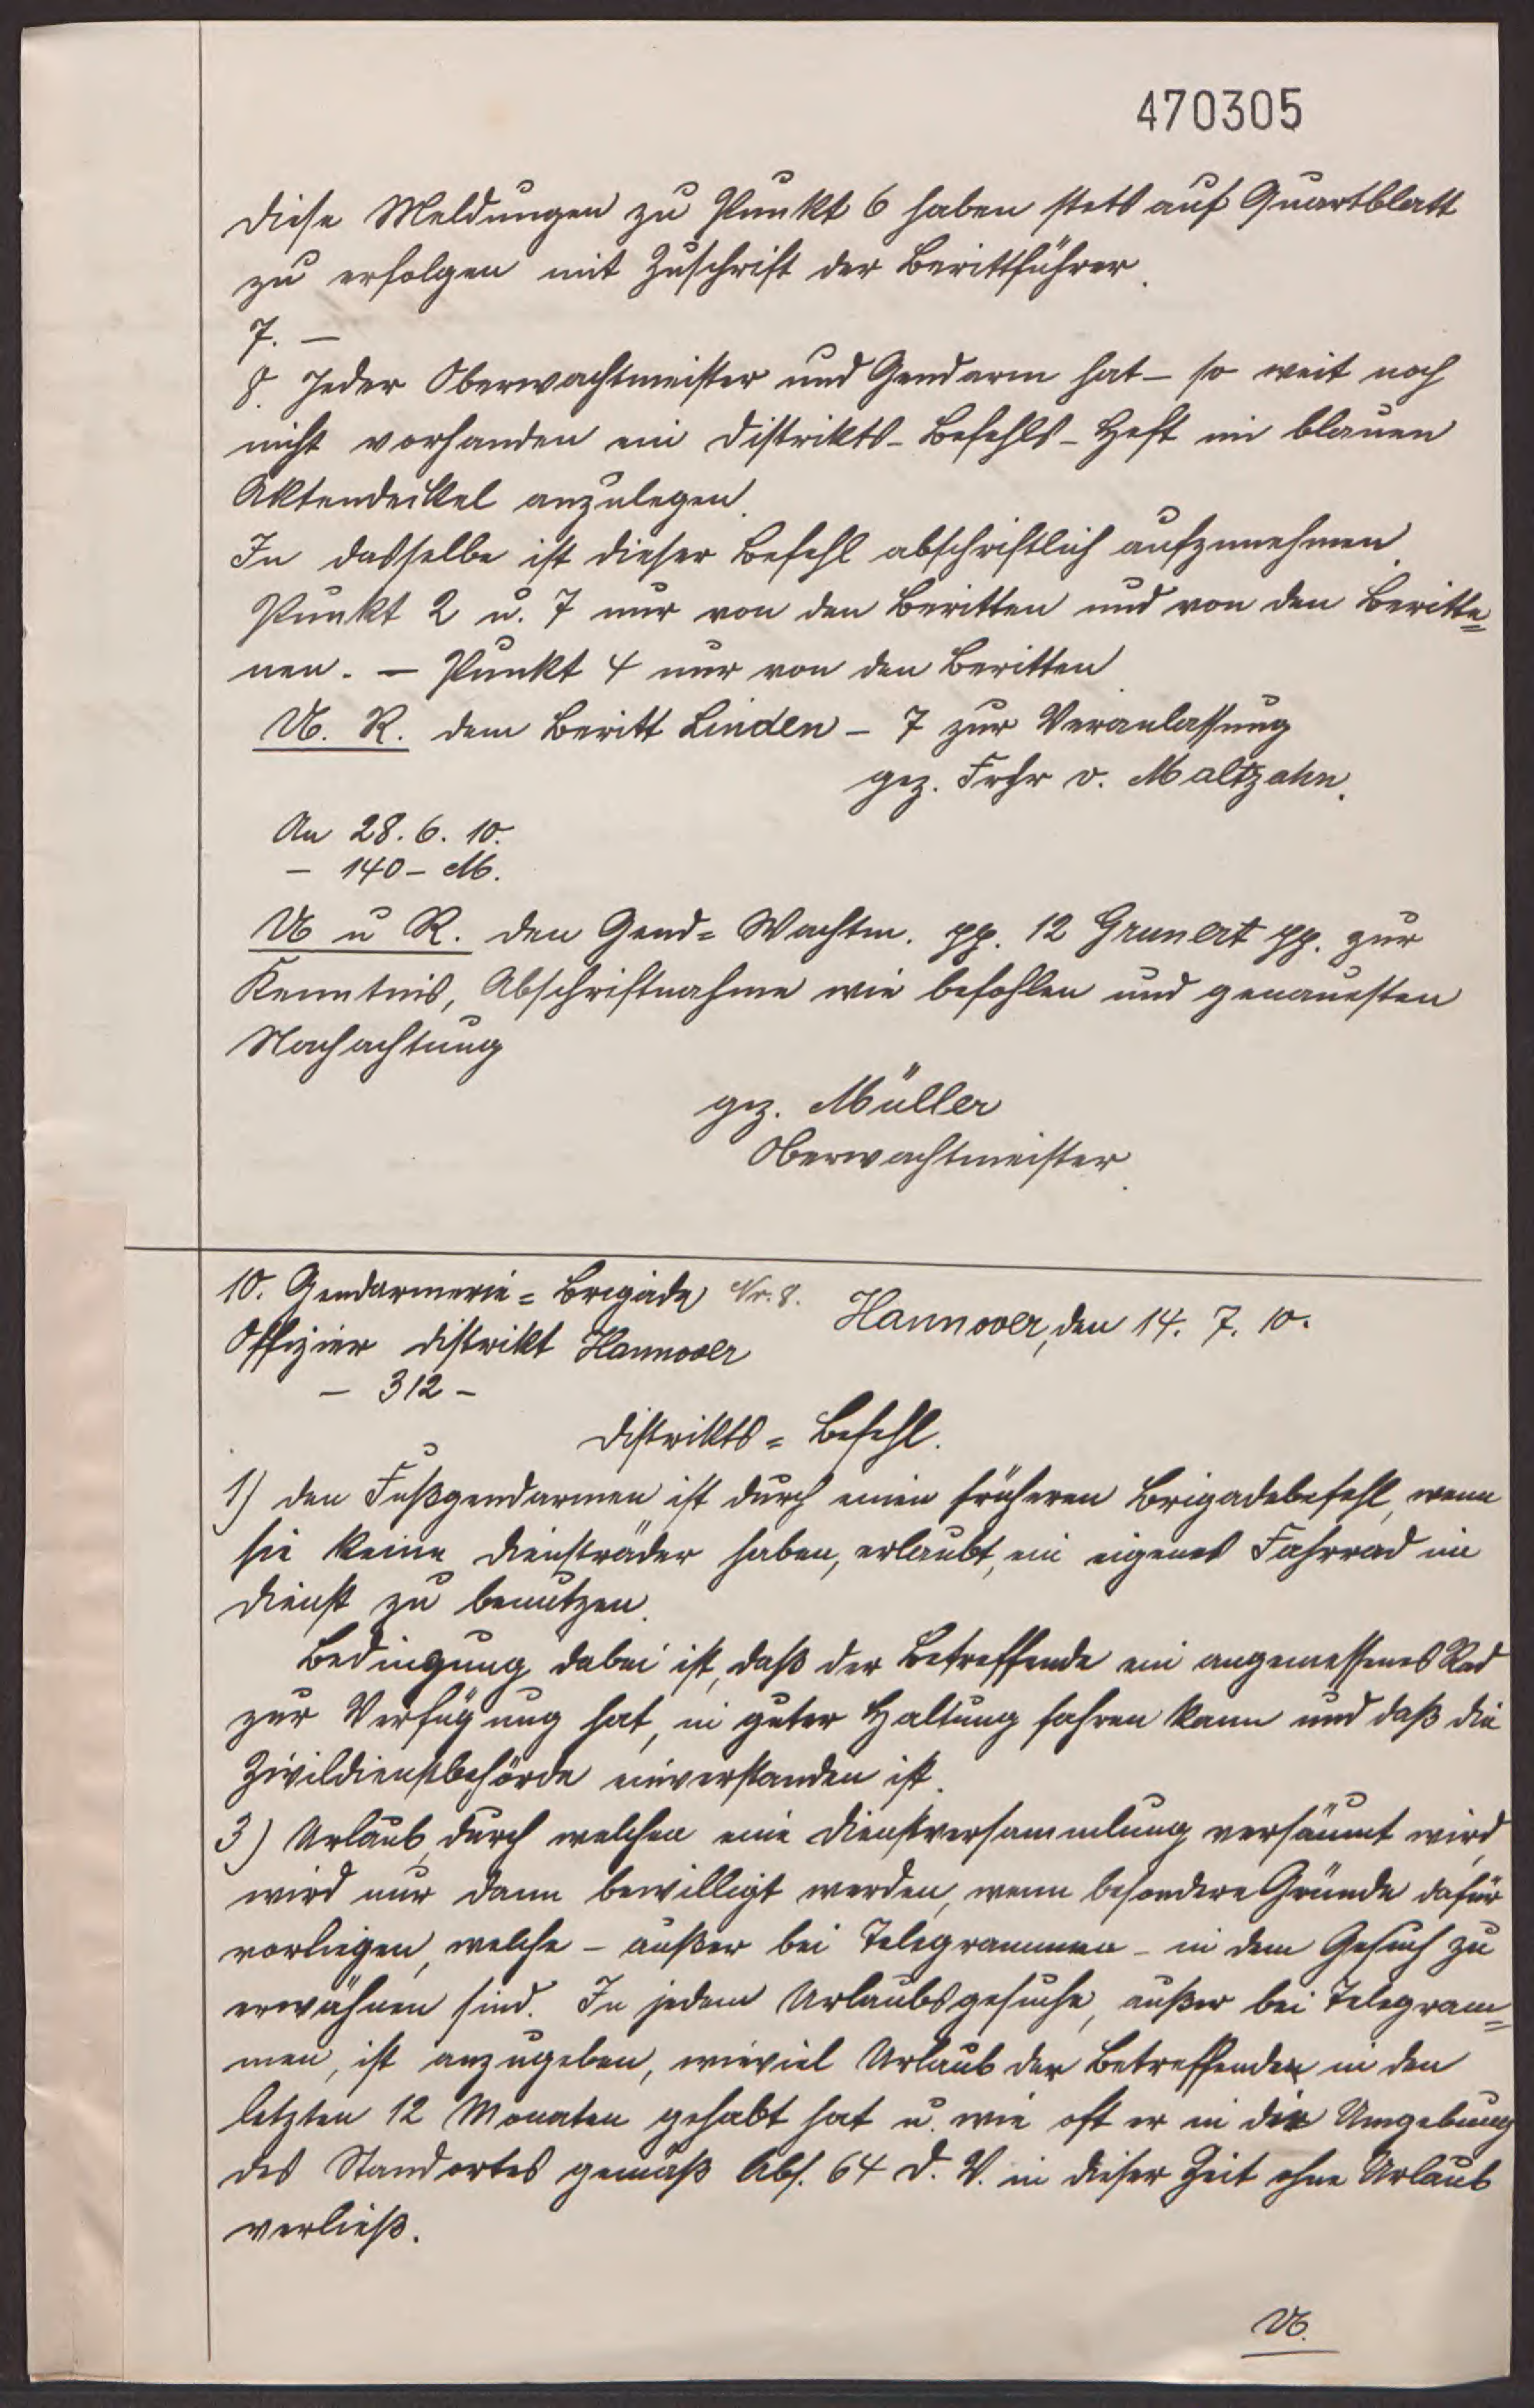 470305
Diese Meldungen zu Punkt 6 haben stets auf Quartblatt
zu erfolgen mit Zuschrift der Berittführer.
7. —
8. Jeder Oberwachtmeister und Gendarm hat – so weit noch
nicht vorhanden ein Distrikts-Befehls-Heft im blauen
Aktendeckel anzulegen.
In dasselbe ist dieser Befehl abschriftlich aufzunehmen.
Punkt 2 u. 7 nur von den Beritten und von den Beritte=
nen. — Punkt 4 nur von den Beritten.
U. R. dem Beritt Linden – 7 zur Veranlassung
gez. Frhr v. Maltzahn.
An 28. 6. 10.
– 140 – M.
U u R. den Gend= Wachtm. pp. 12 Grunert pp. zur
Kenntnis, Abschriftnahme wie befohlen und genauesten
Nachachtung
gez. Müller
Oberwachtmeister.
10. Gendarmerie= Brigade Nr. 8.
Hannover, den 14. 7. 10.
Offizier Distrikt Hannover
– 312 –
Distrikts= Befehl.
1) Den Fußgendarmen ist durch einen früheren Brigadebefehl, wenn
sie keine Diensträder haben, erlaubt, ein eigenes Fahrrad im
Dienst zu benutzen.
Bedingung dabei ist, daß der Betreffende ein angemessenes Rad
zur Verfügung hat, in guter Haltung fahren kann und daß die
Zivildienstbehörde einverstanden ist.
3) Urlaub, durch welchen eine Dienstversammlung versäumt wird,
wird nur dann bewilligt werden, wenn besondere Gründe dafür
vorliegen, welche – außer bei Telegrammen – in dem Gesuch zu
erwähnen sind. In jedem Urlaubsgesuche, außer bei Telegram=
men, ist anzugeben, wieviel Urlaub der Betreffenden in den
letzten 12 Monaten gehabt hat u. wie oft er in die Umgebung
des Standortes gemäß Abs. 64 D. V. in dieser Zeit ohne Urlaub
verließ.
U.